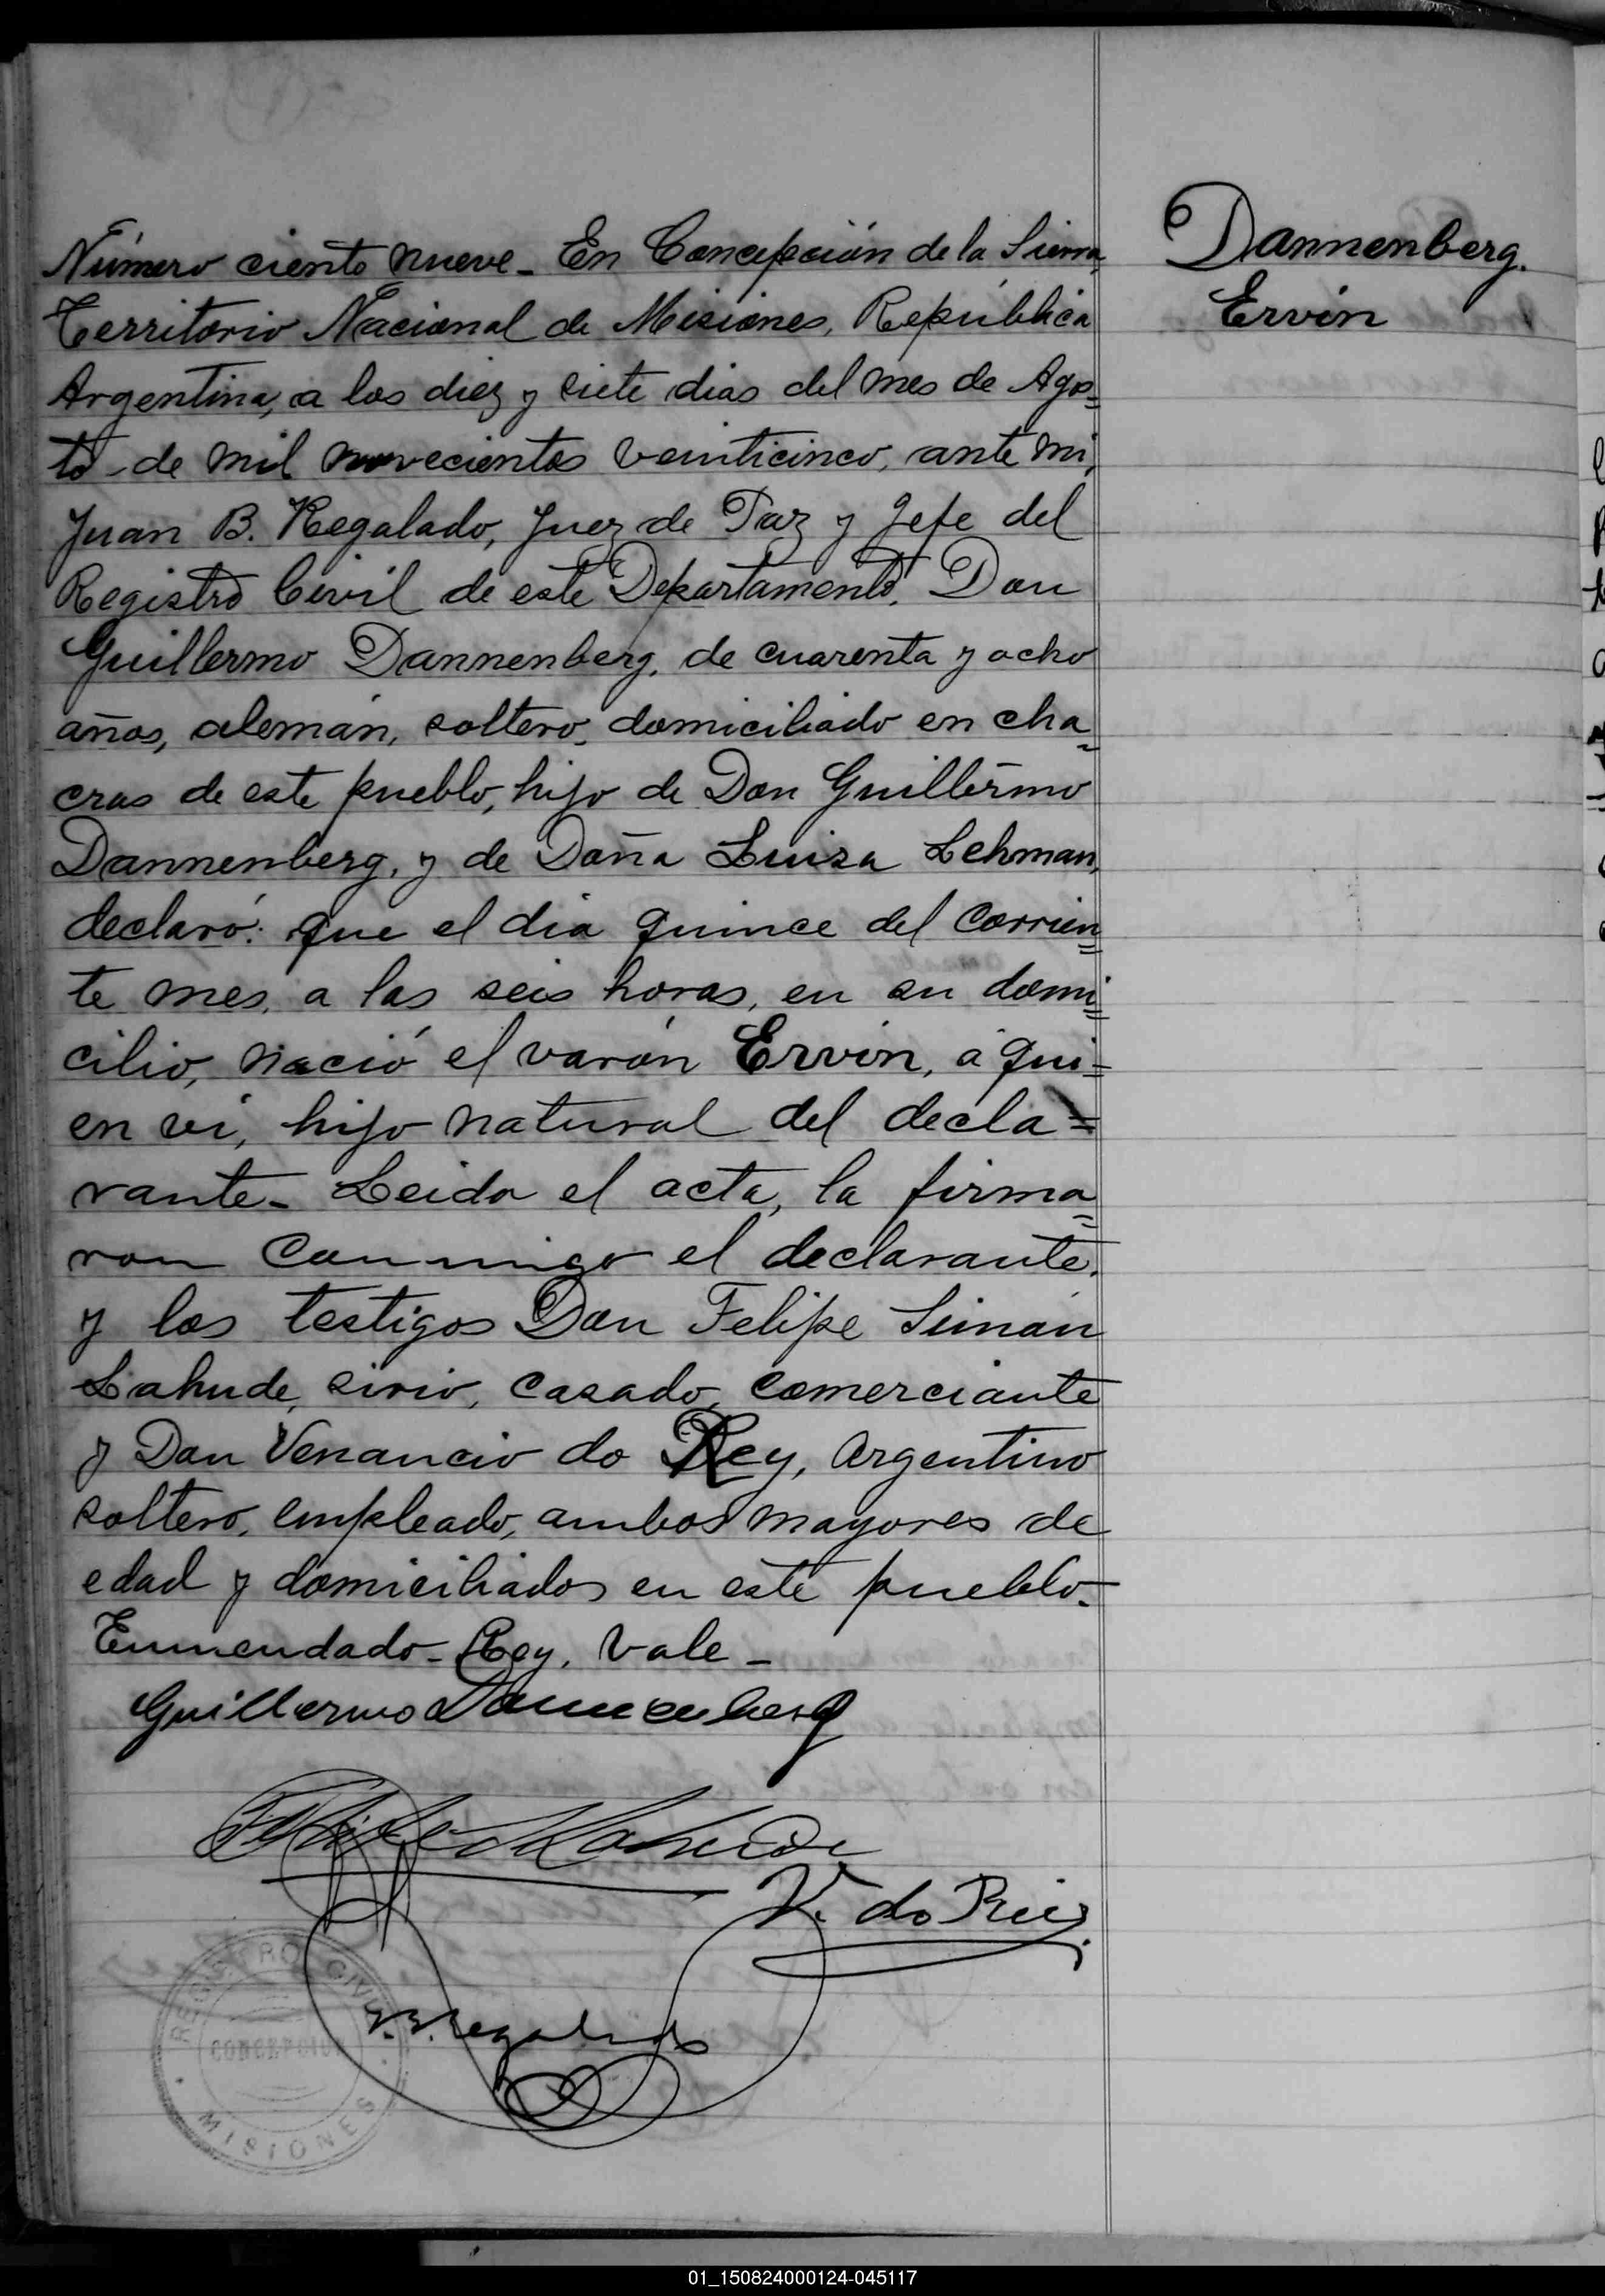 Dannenberg.
Ervin
Número ciento nueve - En Concepción de la Sierra,
Territorio Nacional de Misiones, República
Argentina, a los diez y siete dias del mes de Agos=
to de mil novecientos veinticinco, ante mi,
Juan B. Regalado, Juez de Paz y Jefe del
Registro Civil de este Departamento, Don
Guillermo Dannenberg, de cuarenta y ocho
años, alemán, soltero, domiciliado en cha=
cras de este pueblo, hijo de Don Guillermo
Dannenberg, y de Doña Luisa Lehman,
declaró: que el dia quince del corrien=
te mes, a las seis horas, en su domi=
cilio, nació el varón Ervin, a qui=
en vi, hijo natural del decla=
rante - Leida el acta, la firma=
ron conmigo el declarante,
y los testigos Don Felipe Simán
Lahude, sirio, casado, comerciante
y Don Venancio do Rey, argentino
soltero, empleado, ambos mayores de
edad y domiciliados en este pueblo.-
Enmendado - Rey, Vale -
Guillermo Dannenberg
Felipe S Lahude
V. do Rey
J. B. Regalado
REGISTRO CIVIL
CONCEPCION
MISIONES
01_150824000124-045117